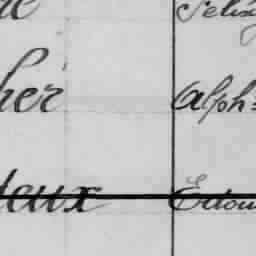 Félix
her Alph:
deux Edou